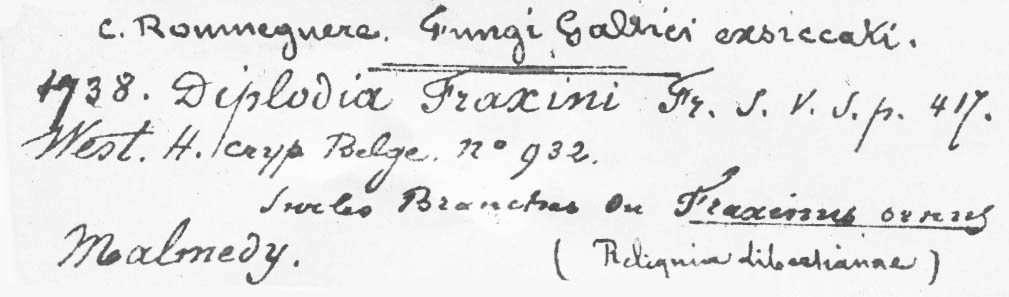 C. Roumeguere. Fungi Gallici exsiccati.
1738. Diplodia Fraxini Fr. S. V. S. p. 417.
West. H. cryp Belge. no 932.
Sur les Branches du Fraxinus ornus
Malmedy. (Reliquiae Libertianae)